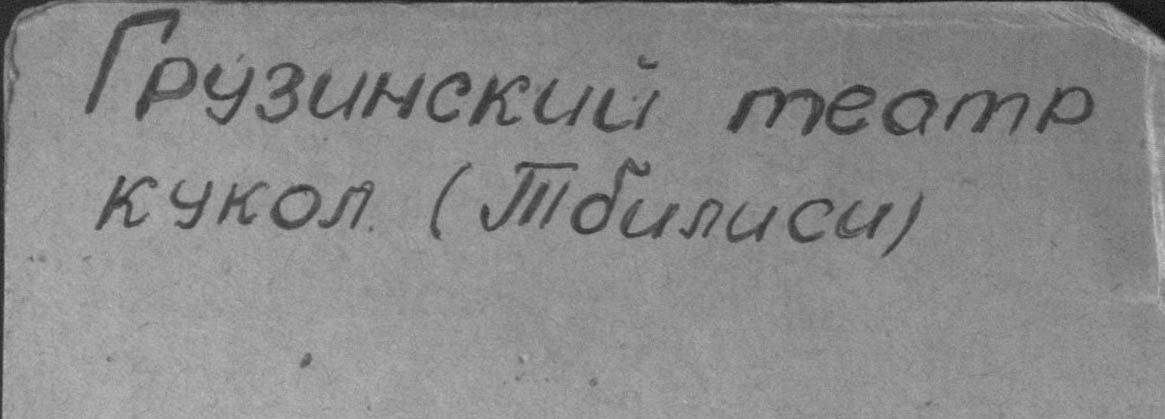 Грузинский театр
кукол. (Тбилиси)